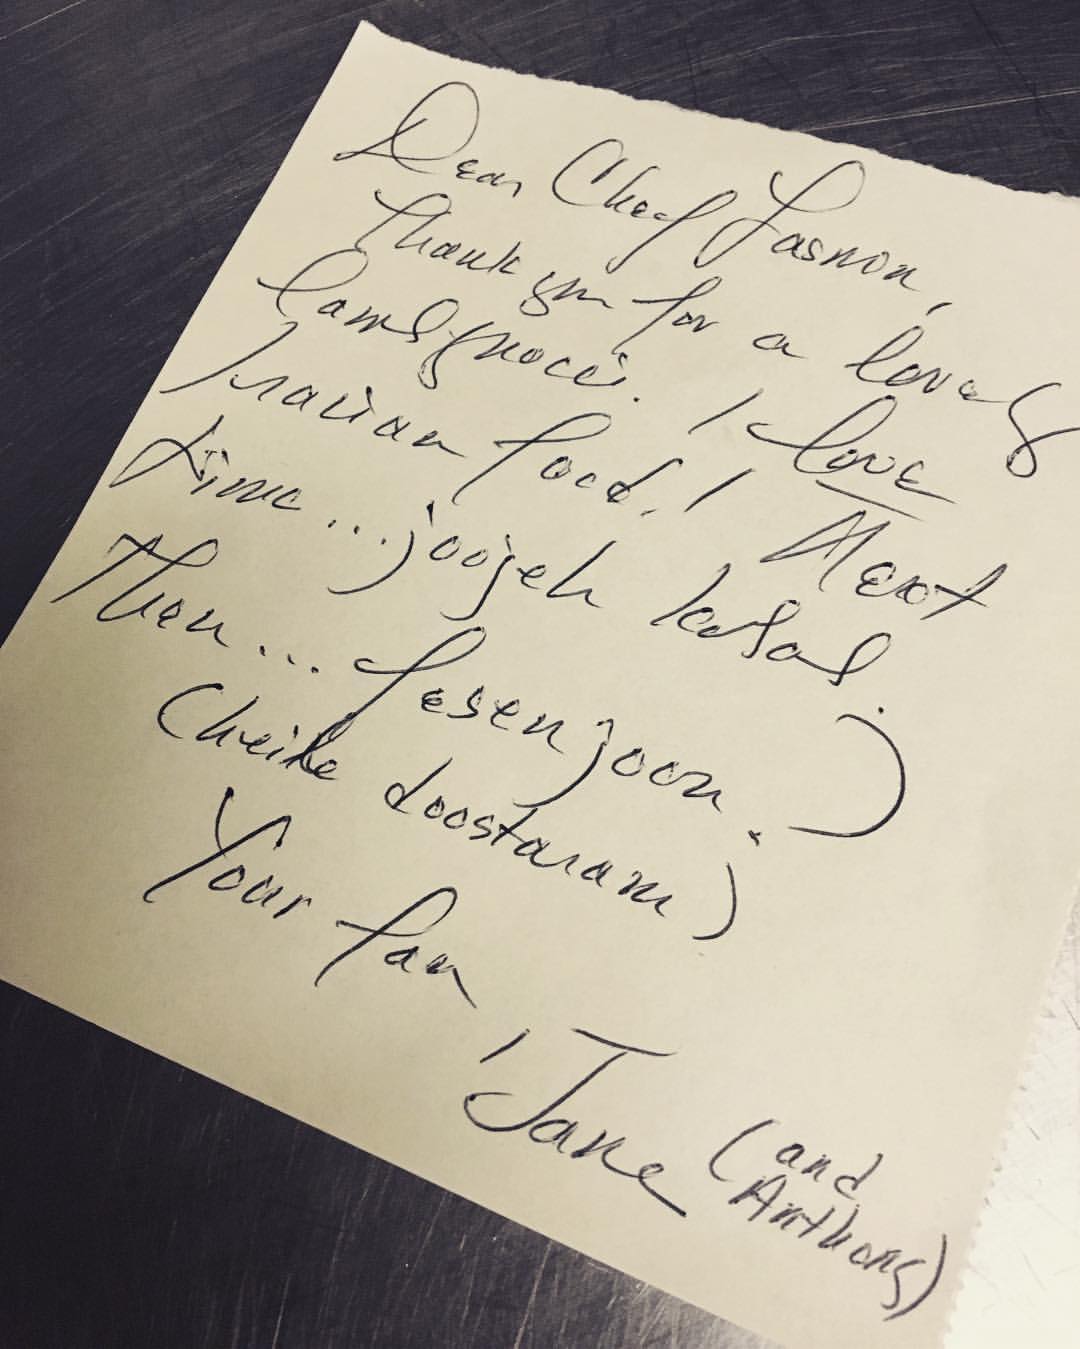 Dear Chef Yasmon,
Thank you for a lovely
lamb gnocci. I love
Iranian food! Next
time...joojeh kabab.
Then... fesenjoon. :)
(kheile doostaram)
Your fan,
Jane (and
Anthony)